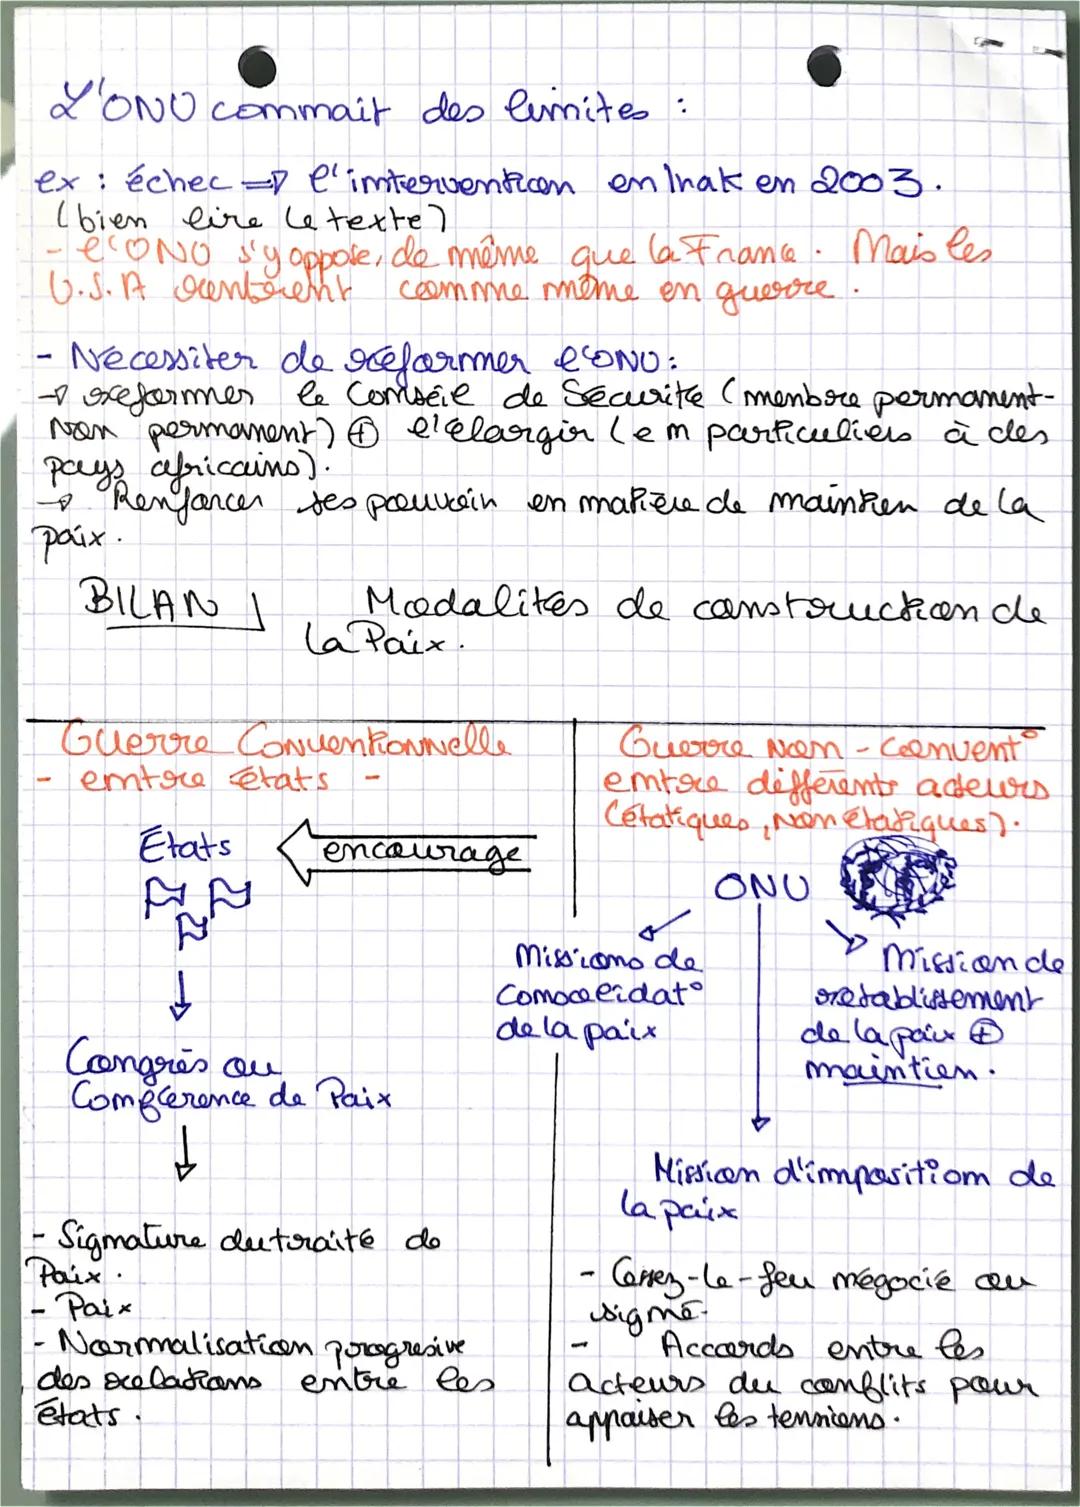 L'ONU connait des limites :
ex : échec => l'intervention en Irak en 2003.
(bien lire le texte)
- l'ONU s'y oppose, de même que la France. Mais les
U.S.A rentrèrent comme même en guerre.
- Nécessiter de réformer l'ONU:
→ réformer le Conseil de Sécurité (membre permanent-
Non permanent) ⊕ l'élargir (en particuliers à des
pays africains).
→ Renforcer ses pouvoir en matière de maintien de la
paix.
BILAN Modalités de construction de
la Paix.
Guerre Conventionnelle
- entre états -
Etats encourage
Congrès ou
Conférence de Paix
- Signature du traité de
Paix.
- Paix
- Normalisation progresive
des relations entre les
états.
Guerre Non-convent°
entre différents acteurs
(étatiques, Non étatiques).
ONU
Missions de
consolidat°
de la paix
Mission de
rétablissement
de la paix ⊕
maintien.
Mission d'imposition de
la paix
- Cessez-le-feu négocié ou
signé.
- Accords entre les
acteurs du conflits pour
appaiser les tensions.